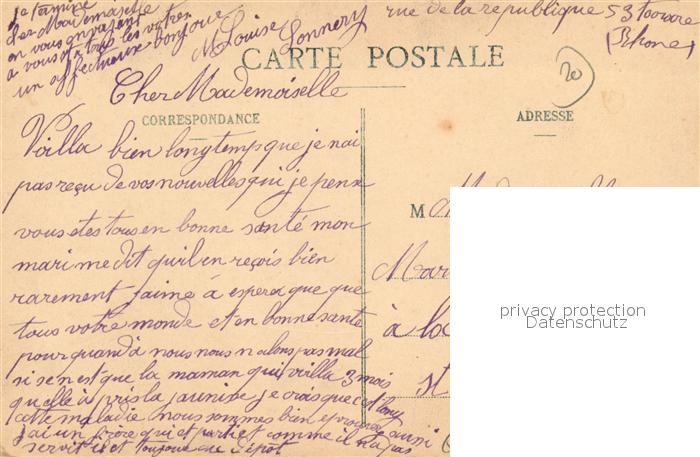 je termine
cher Mademoiselle
en vous envoyant
à vous et a tous les votres
un affectueux bonjour
M Louise Sonnery
rue de la republique 53 tarare
(Rhone)
CARTE POSTALE
20
Cher Mademoiselle
CORRESPONDANCE
ADRESSE
Voilla bien longtemps que je nai
pas reçu de vos nouvelles qui je pense
vous etes tous en bonne santé mon
mari me dit qu'il en reçois bien
rarement jaime à esperer que que
tous votre monde et en bonne sante
pour quand à nous nous n alons pas mal
si se n est que la maman qui voilla 3 mois
qu elle à pris la jaunise je crois que c
cette maladie nous sommes bien eprouvée ausi
jai un frère qui et parti est comme il n a pas
servit il et toujour au Dépot
M
Mar
à la
st
privacy protection
Datenschutz